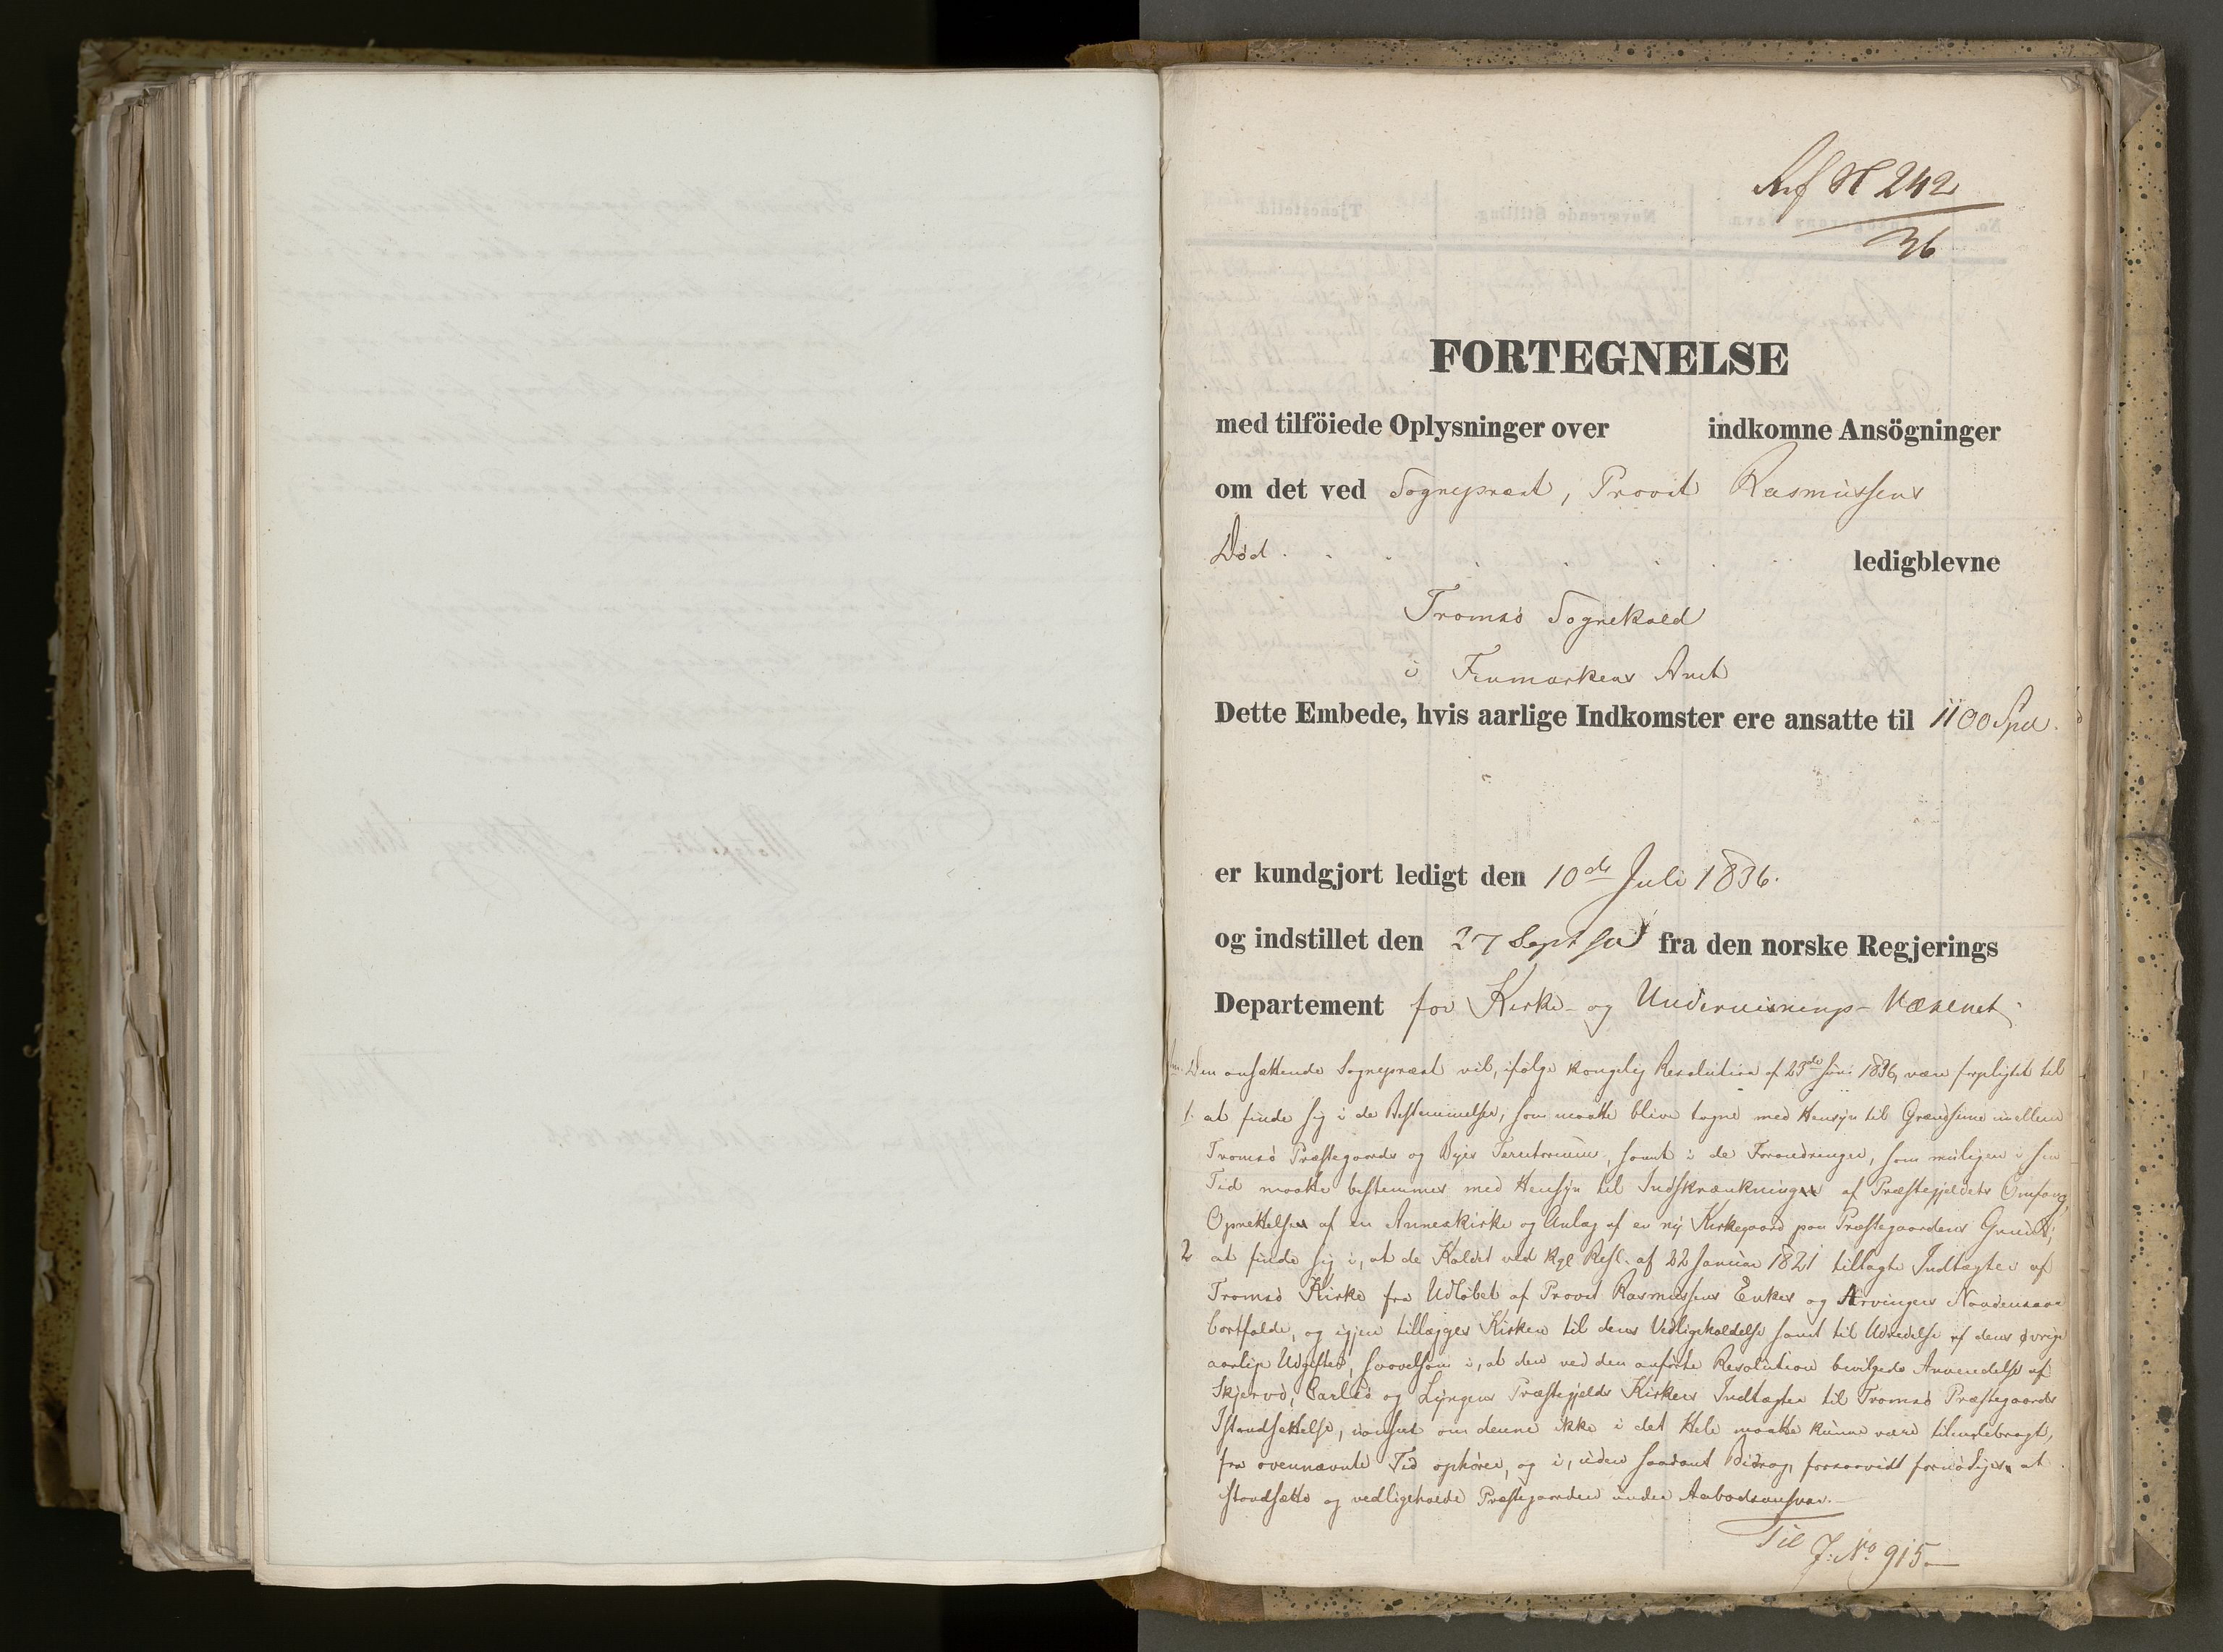 Ref N 242
36
FORTEGNELSE
med tilföiede Oplysninger over indkomne Ansögninger
om det ved Sognepræst, Provst Rasmussens
Død ledigblevne
Tromsø Sognekald
i Finmarkens Amt
Dette Embede, hvis aarlige Indkomster ere ansatte til 1100 Spd.
er kundgjort ledigt den 10de Juli 1836.
og indstillet den 27 Sept s. A. fra den norske Regjerings
Departement for Kirke- og Underviisnings-Væsenet.
Den ansættende Sognepræst vil, ifølge kongelig Resolution af 23de Juni 1836, være forpligtet til
1. at finde sig i de Bestemmelser, som maatte blive tagne med Hensyn til Grændserne mellem
Tromsø Præstegaards og Byes Territorium, samt i de Forandringer, som muligen i sin
Tid maatte bestemmes med Hensyn til Indskrænkninger af Præstegjeldets Omfang,
Oprettelsen af en Annexkirke og Anlæg af en ny Kirkegaard paa Præstegaardens Grund;
2 at finde sig i, at de Kaldet ved Kgl Resl. af 22 Januar 1821 tillagte Indtægter af
Tromsø Kirke fra Udløbet af Provst Rasmussens Enkes og Arvingers Naadensaar
bortfalde, og igjen tillægges Kirken til dens Vedligeholdelse samt til Udredelse af dens øvrige
aarlige Udgifter, saavelsom i, at den ved den anførte Resolution bevilgede Anvendelse af
Skjervø, Carlsø og Lyngens Præstegjelds Kirkers Indtægter til Tromsø Præstegaards
Istandsættelse, uanseet om denne ikke i det Hele maatte kunne være tilveiebragt,
fra ovennævnte Tid ophører, og i, uden saadant Bidrag, forsaavidt fornødiges, at
istandsætte og vedligeholde Præstegaarden under Aabodsansvar.
Til J: No. 915